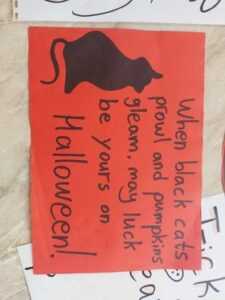 When black cats
prowl and pumpkins
gleam, may luck
be yours on
Halloween!
Trick